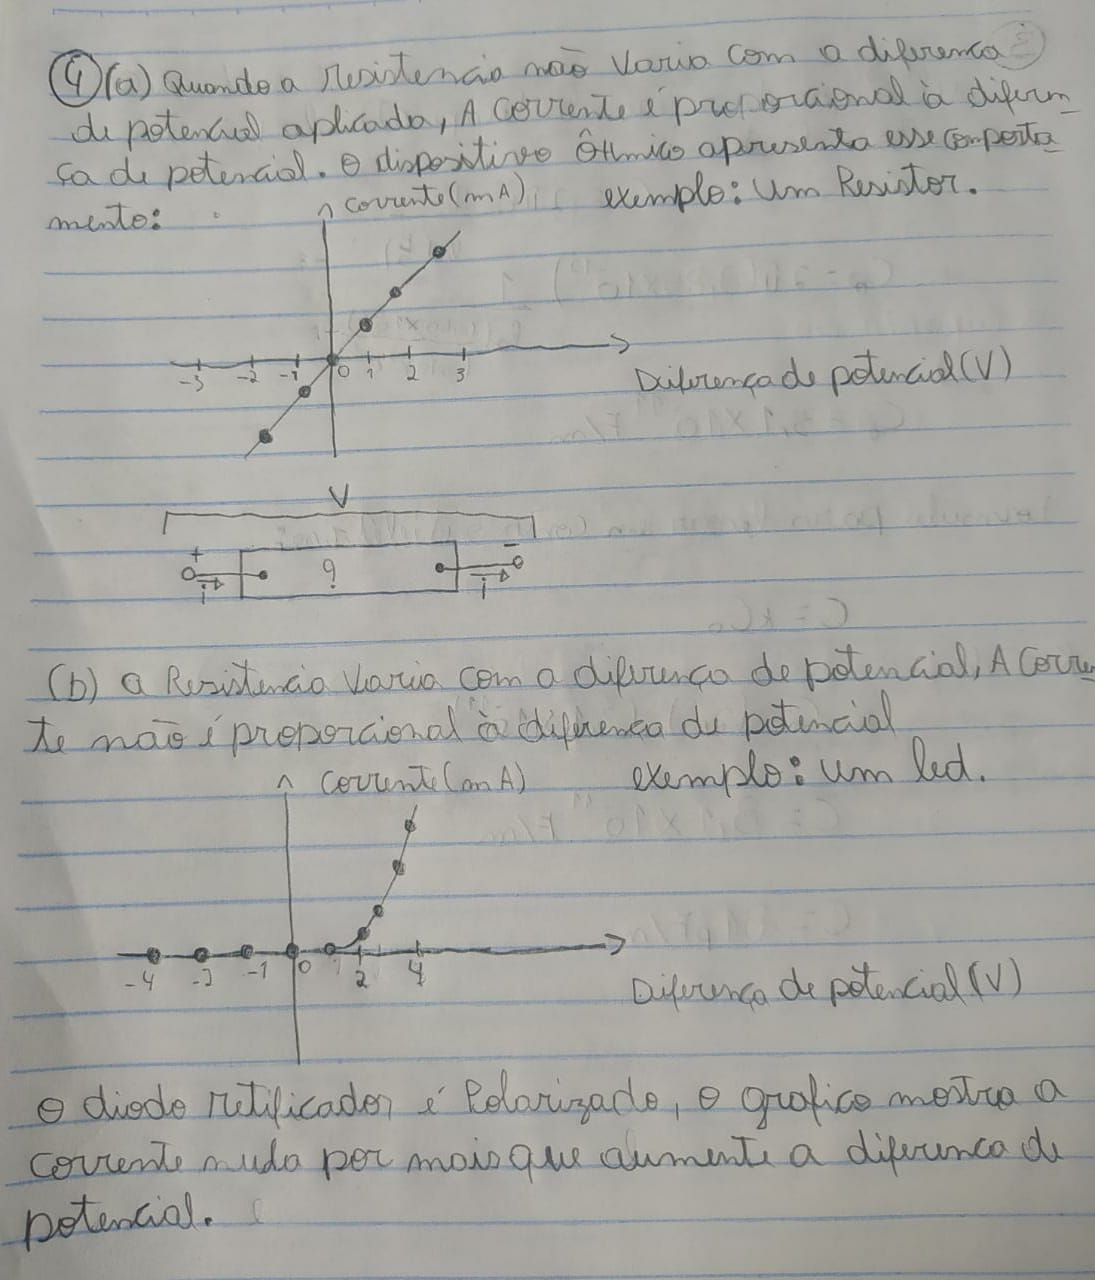 4 (a) Quando a resistencia não varia com a diferenca
de potencial aplicada, A corrente é proporcional à diferen
ça de potencial. O dispositivo Ôhmico apresenta esse comporta
mento:
exemplo: Um Resistor.
corrente (mA)
-3 -2 -1 0 1 2 3
Diferença de potencial (V)
V
+ -
?
i i
(b) a Resistencia varia com a diferença de potencial, A Corren
te não é proporcional à diferença de potencial
corrente (mA) exemplo: um led.
-4 -2 -1 0 1 2 4
Diferença de potencial (V)
O diodo retificador é Polarizado, o grafico mostra a
corrente nula por mais que aumente a diferenca de
potencial.